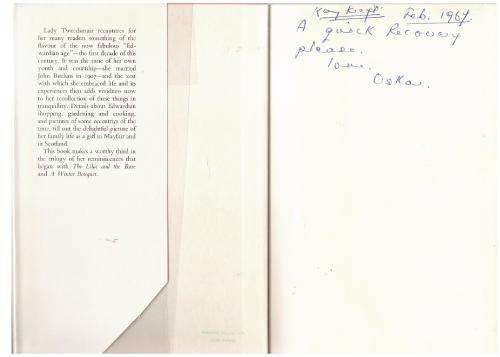 Lady Tweedsmuir recaptures for
her many readers something of the
flavour of the now fabulous "Ed-
wardian age"—the first decade of this
century. It was the time of her own
youth and courtship—she married
John Buchan in 1907—and the zest
with which she embraced life and its
experiences then adds vividness now
to her recollection of these things in
tranquility. Details about Edwardian
shopping, gardening and cooking,
and pictures of some eccentrics of the
time, fill out the delightful picture of
her family life as a girl in Mayfair and
in Scotland.
This book makes a worthy third in
the trilogy of her reminiscences that
began with The Lilac and the Rose
and A Winter Bouquet.
Kay Feb. 1967.
A quick Recovery
please.
love.
Oskar.